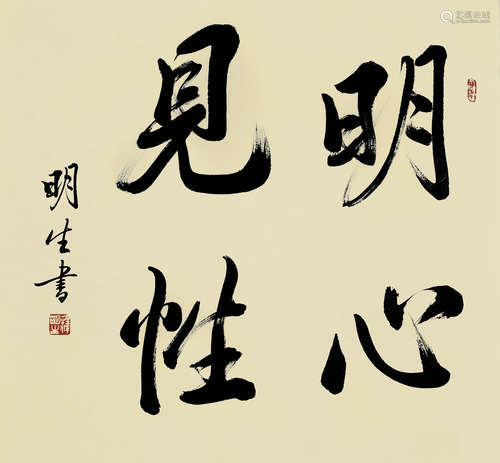 明心
見性
明生書